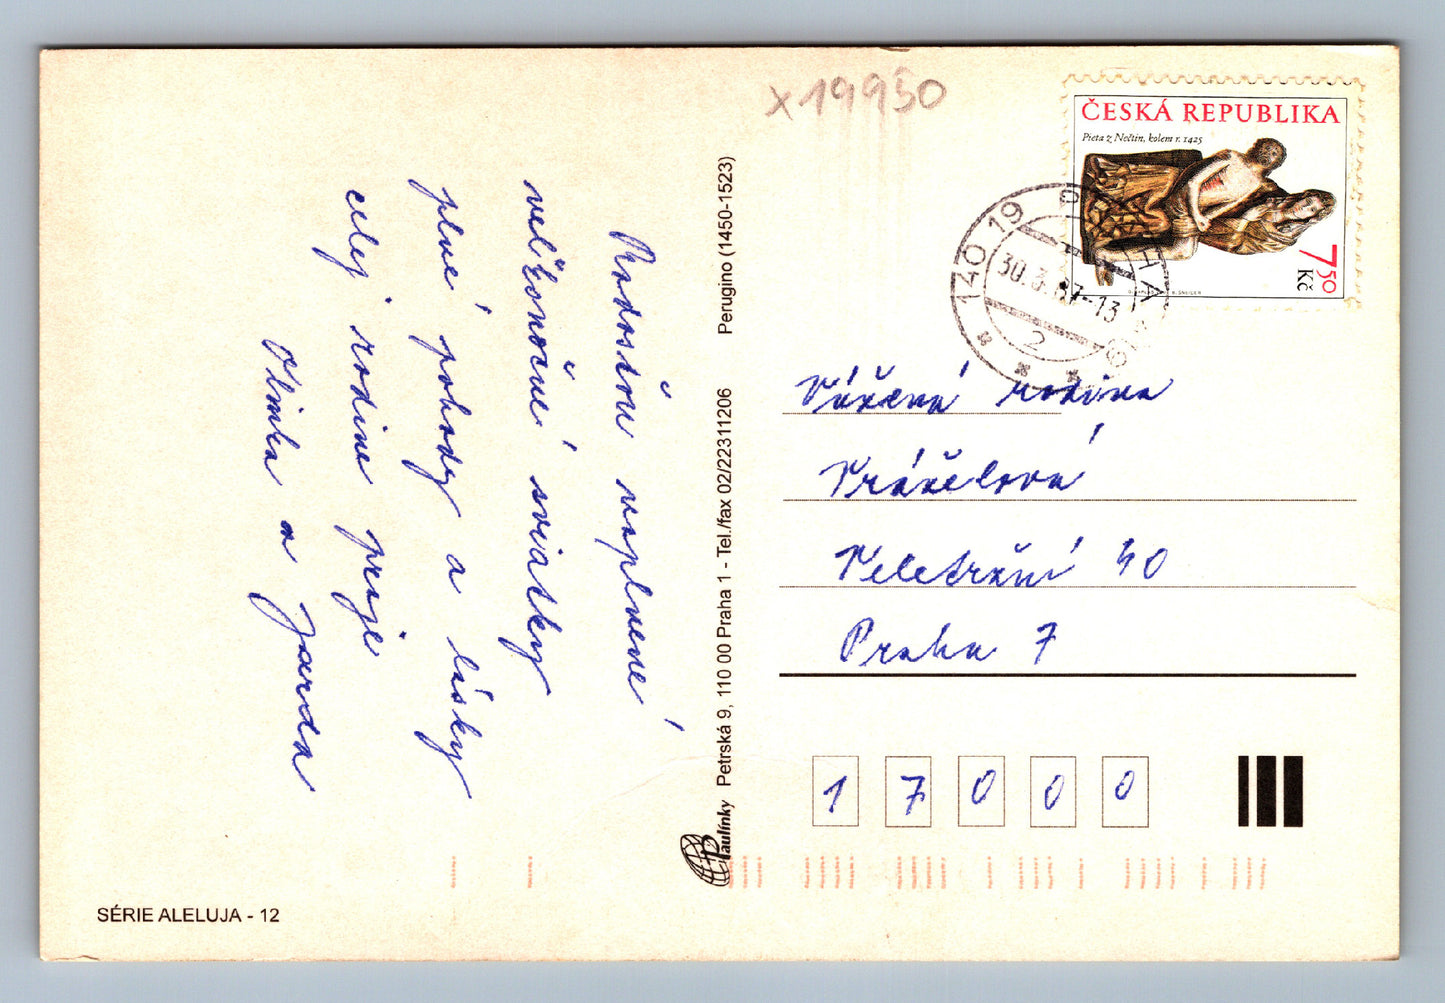 x 19950
ČESKÁ REPUBLIKA
Pieta z Nečtin, kolem r. 1425
7,50
Kč
140 19
30.3.
-13
2
Radosťou naplnené
veľkonočné sviatky
plné pohody a lásky
celej rodine praje
Olinka a Jarda
Perugino (1450-1523)
Petrská 9, 110 00 Praha 1 - Tel./fax 02/22311206
Paulínky
Vážená rodina
Vráželová
Veletržní 40
Praha 7
1 7 0 0 0
SÉRIE ALELUJA - 12